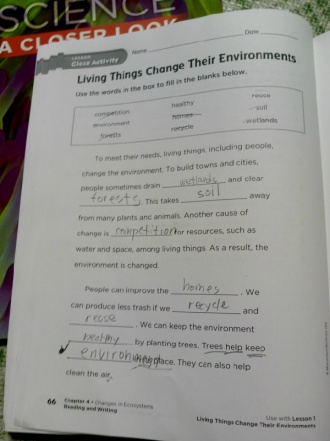 SCIENCE
A CLOSER LOOK
Date
LESSON
Class Activity
Name
Living Things Change Their Environments
Use the words in the box to fill in the blanks below.
competition healthy reuse
environment homes soil
forests recycle wetlands
To meet their needs, living things, including people,
change the environment. To build towns and cities,
people sometimes drain wetlands and clear
forests. This takes soil away
from many plants and animals. Another cause of
change is competition for resources, such as
water and space, among living things. As a result, the
environment is changed.
People can improve the homes. We
can produce less trash if we recycle and
reuse. We can keep the environment
healthy by planting trees. Trees help keep
environment place. They can also help
clean the air.
66 Chapter 4 • Changes in Ecosystems
Reading and Writing
Use with Lesson 1
Living Things Change Their Environments